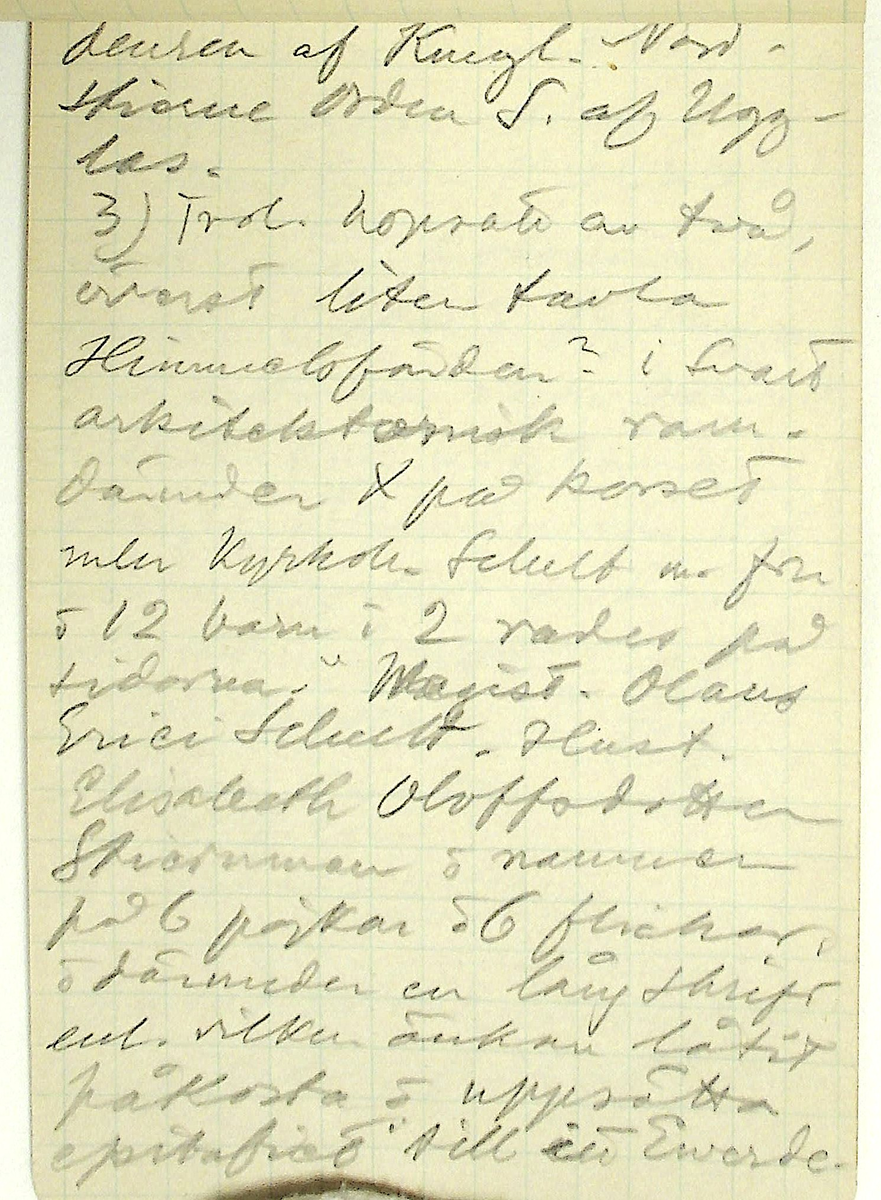 deuren af Kungl. Nord-
stierne Orden S. af Ugg-
las.
3) Trol. hopsatt av två,
överst liten tavla
Himmelsfärden? i svart
arkitektonisk ram.
Därunder X på korset
mln Kyrkoh. Schult m. fru
o 12 barn i 2 rader på
sidorna. Magist. Olaus
Erici Schult. Hust.
Elisabeth Oloffsdotter
Stiernman o namnen
på 6 pojkar o 6 flickor,
o därunder en lång skrift
enl. vilken änkan låtit
påkosta o uppsätta
epitafiet till ett Ewerde-